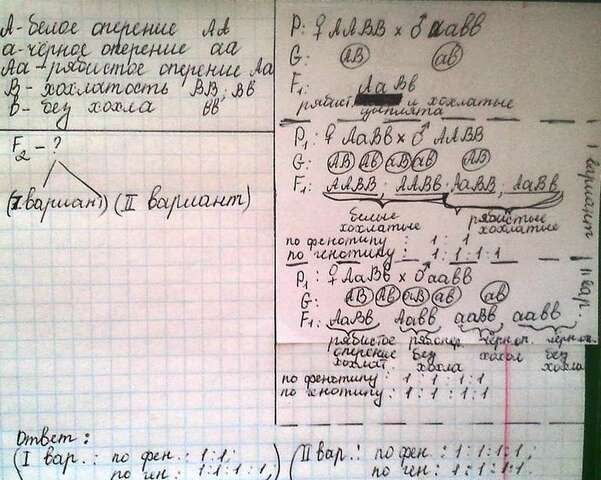 А-белое оперение АА
а-чёрное оперение аа
Аа-рябистое оперение Аа
В- хохлатость ВВ; Вв
в- без хохла вв
F2 - ?
(I вариант) (II вариант)
P: ♀ ААВВ x ♂ аавв
G: АВ ав
F1: АаВв
рябист и хохлатые
цыплята
P1: ♀ АаВв x ♂ ААВВ
АВ Ав аВ ав АВ
F1: ААВВ; ААВв; АаВВ; АаВв
белые рябистые
хохлатые хохлатые
по фенотипу : 1 : 1
по генотипу : 1:1:1:1
I вариант
P1: ♀ АаВв x ♂ аавв
G: АВ Ав аВ ав ав
F1: АаВв Аавв ааВв аавв
рябистое рябопер. чёрн.оп. чёрн.оп.
оперение без хохол без
хохлат. хохла хохла
по фенотипу : 1 : 1 : 1 : 1
по генотипу : 1 : 1 : 1 : 1
II вар.
Ответ:
(I вар.: по фен.: 1:1; (II вар.: по фен: 1:1:1:1;
по ген: 1:1:1:1; по ген: 1:1:1:1.